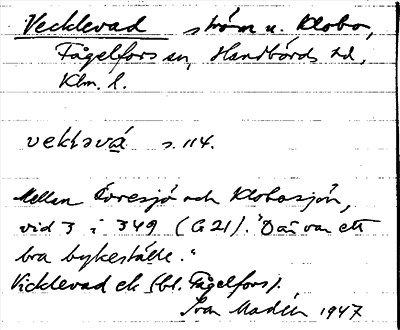 Vecklevad ström n. Klobo,
Fågelfors sn, Handbörds hd,
Klm. l.
veklavá s. 114.
Mellan Övresjö och Klobosjön,
vid 3 i 349 (G21). "Där var ett
bra bykeställe."
Vicklevad ek (bl. Fågelfors).
Ivar Modéer 1947